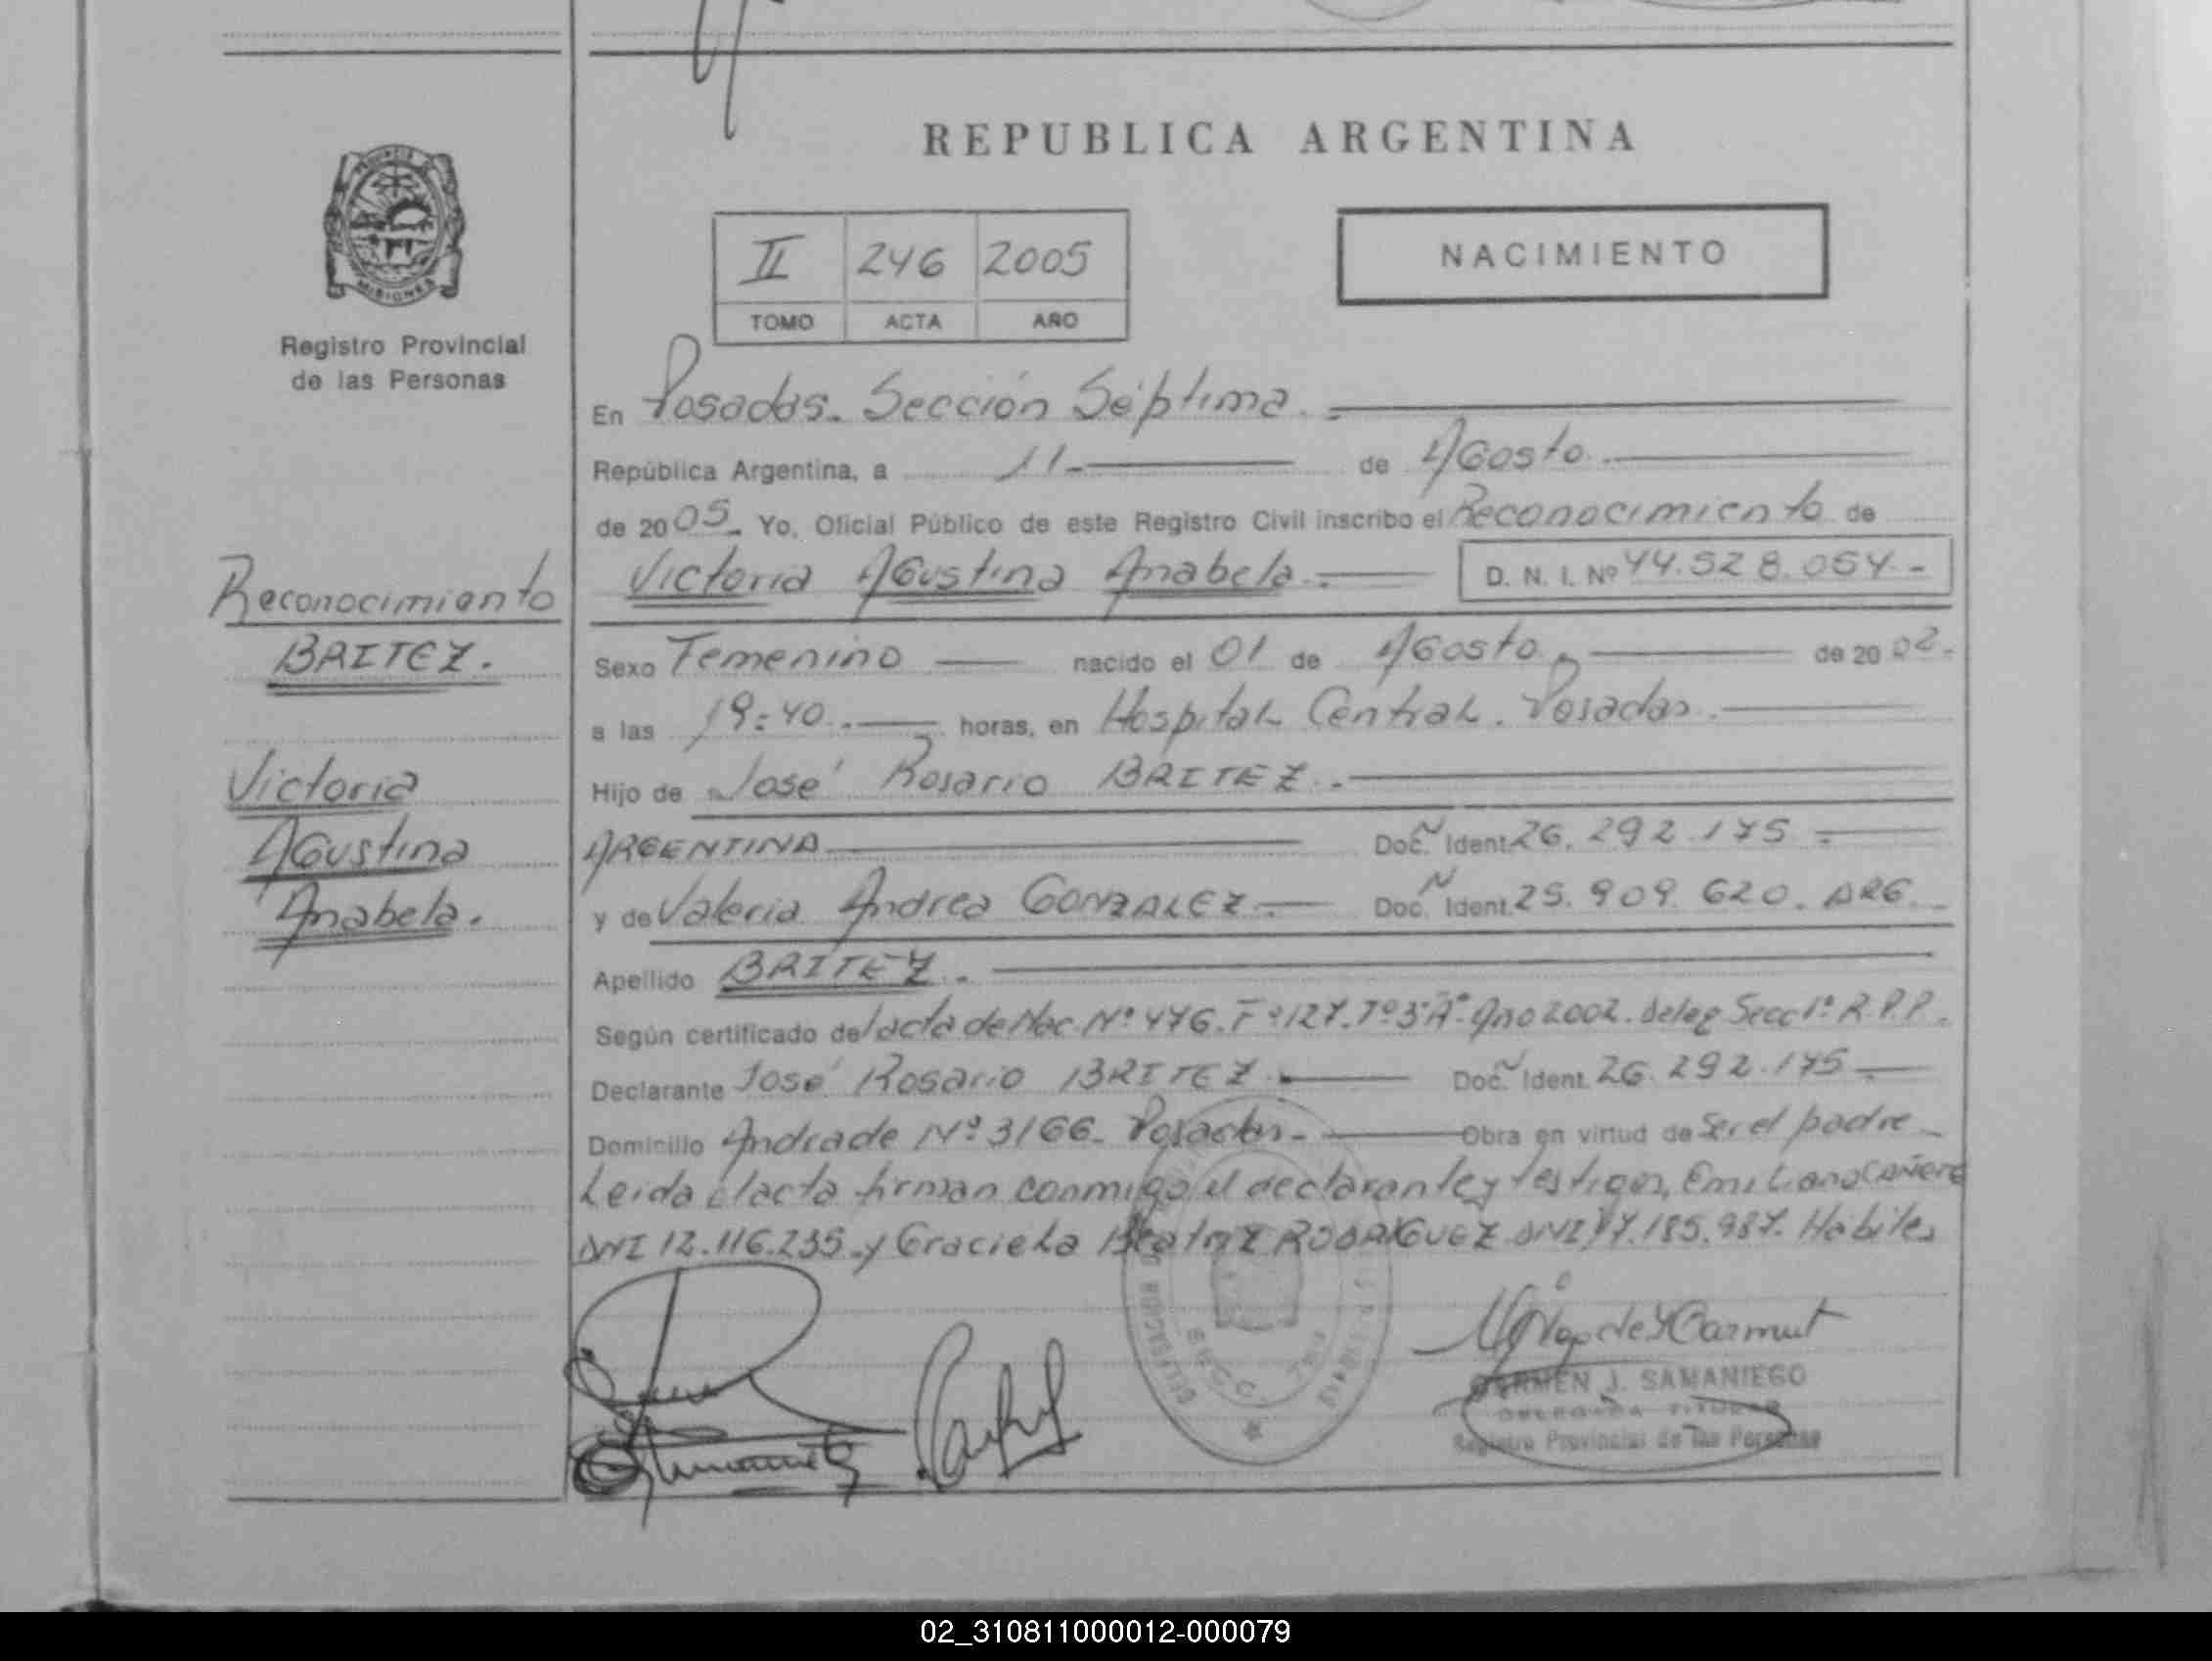 REPUBLICA ARGENTINA
NACIMIENTO
II 246 2005
TOMO ACTA AÑO
MISIONES
Registro Provincial
de las Personas
Reconocimiento
BRITEZ.
Victoria
Agustina
Anabela.
En Posadas. Sección Séptima.
República Argentina, a 11 de Agosto
de 2005. Yo, Oficial Público de este Registro Civil inscribo el Reconocimiento de
Victoria Agustina Anabela. D. N. I. Nº 44.528.054.-
Sexo Femenino nacido el 01 de Agosto de 2002.
a las 19:40 horas, en Hospital Central. Posadas.
Hijo de José Rosario BRITEZ.
ARGENTINA Doc. Ident. 26.292.175
y de Valeria Andrea GONZALEZ Doc. Ident. 25.909.620. ARG.
Apellido BRITEZ.
Según certificado del acta de Nac. Nº 476. Fº 127. Tº 3º A. Año 2002. deleg Secc 1º R.P.P.
Declarante José Rosario BRITEZ Doc. Ident. 26.292.175
Domicilio Andrade Nº 3166. Posadas. Obra en virtud de ser el padre
Leida el acta firman conmigo el declarante y testigos, Emiliano CAÑETE
DNI 12.116.235 y Graciela Beatriz RODRIGUEZ DNI 17.185.987. Habiles
CARMEN J. SAMANIEGO
DELEGADA TITULAR
Registro Provincial de las Personas
02_310811000012-000079